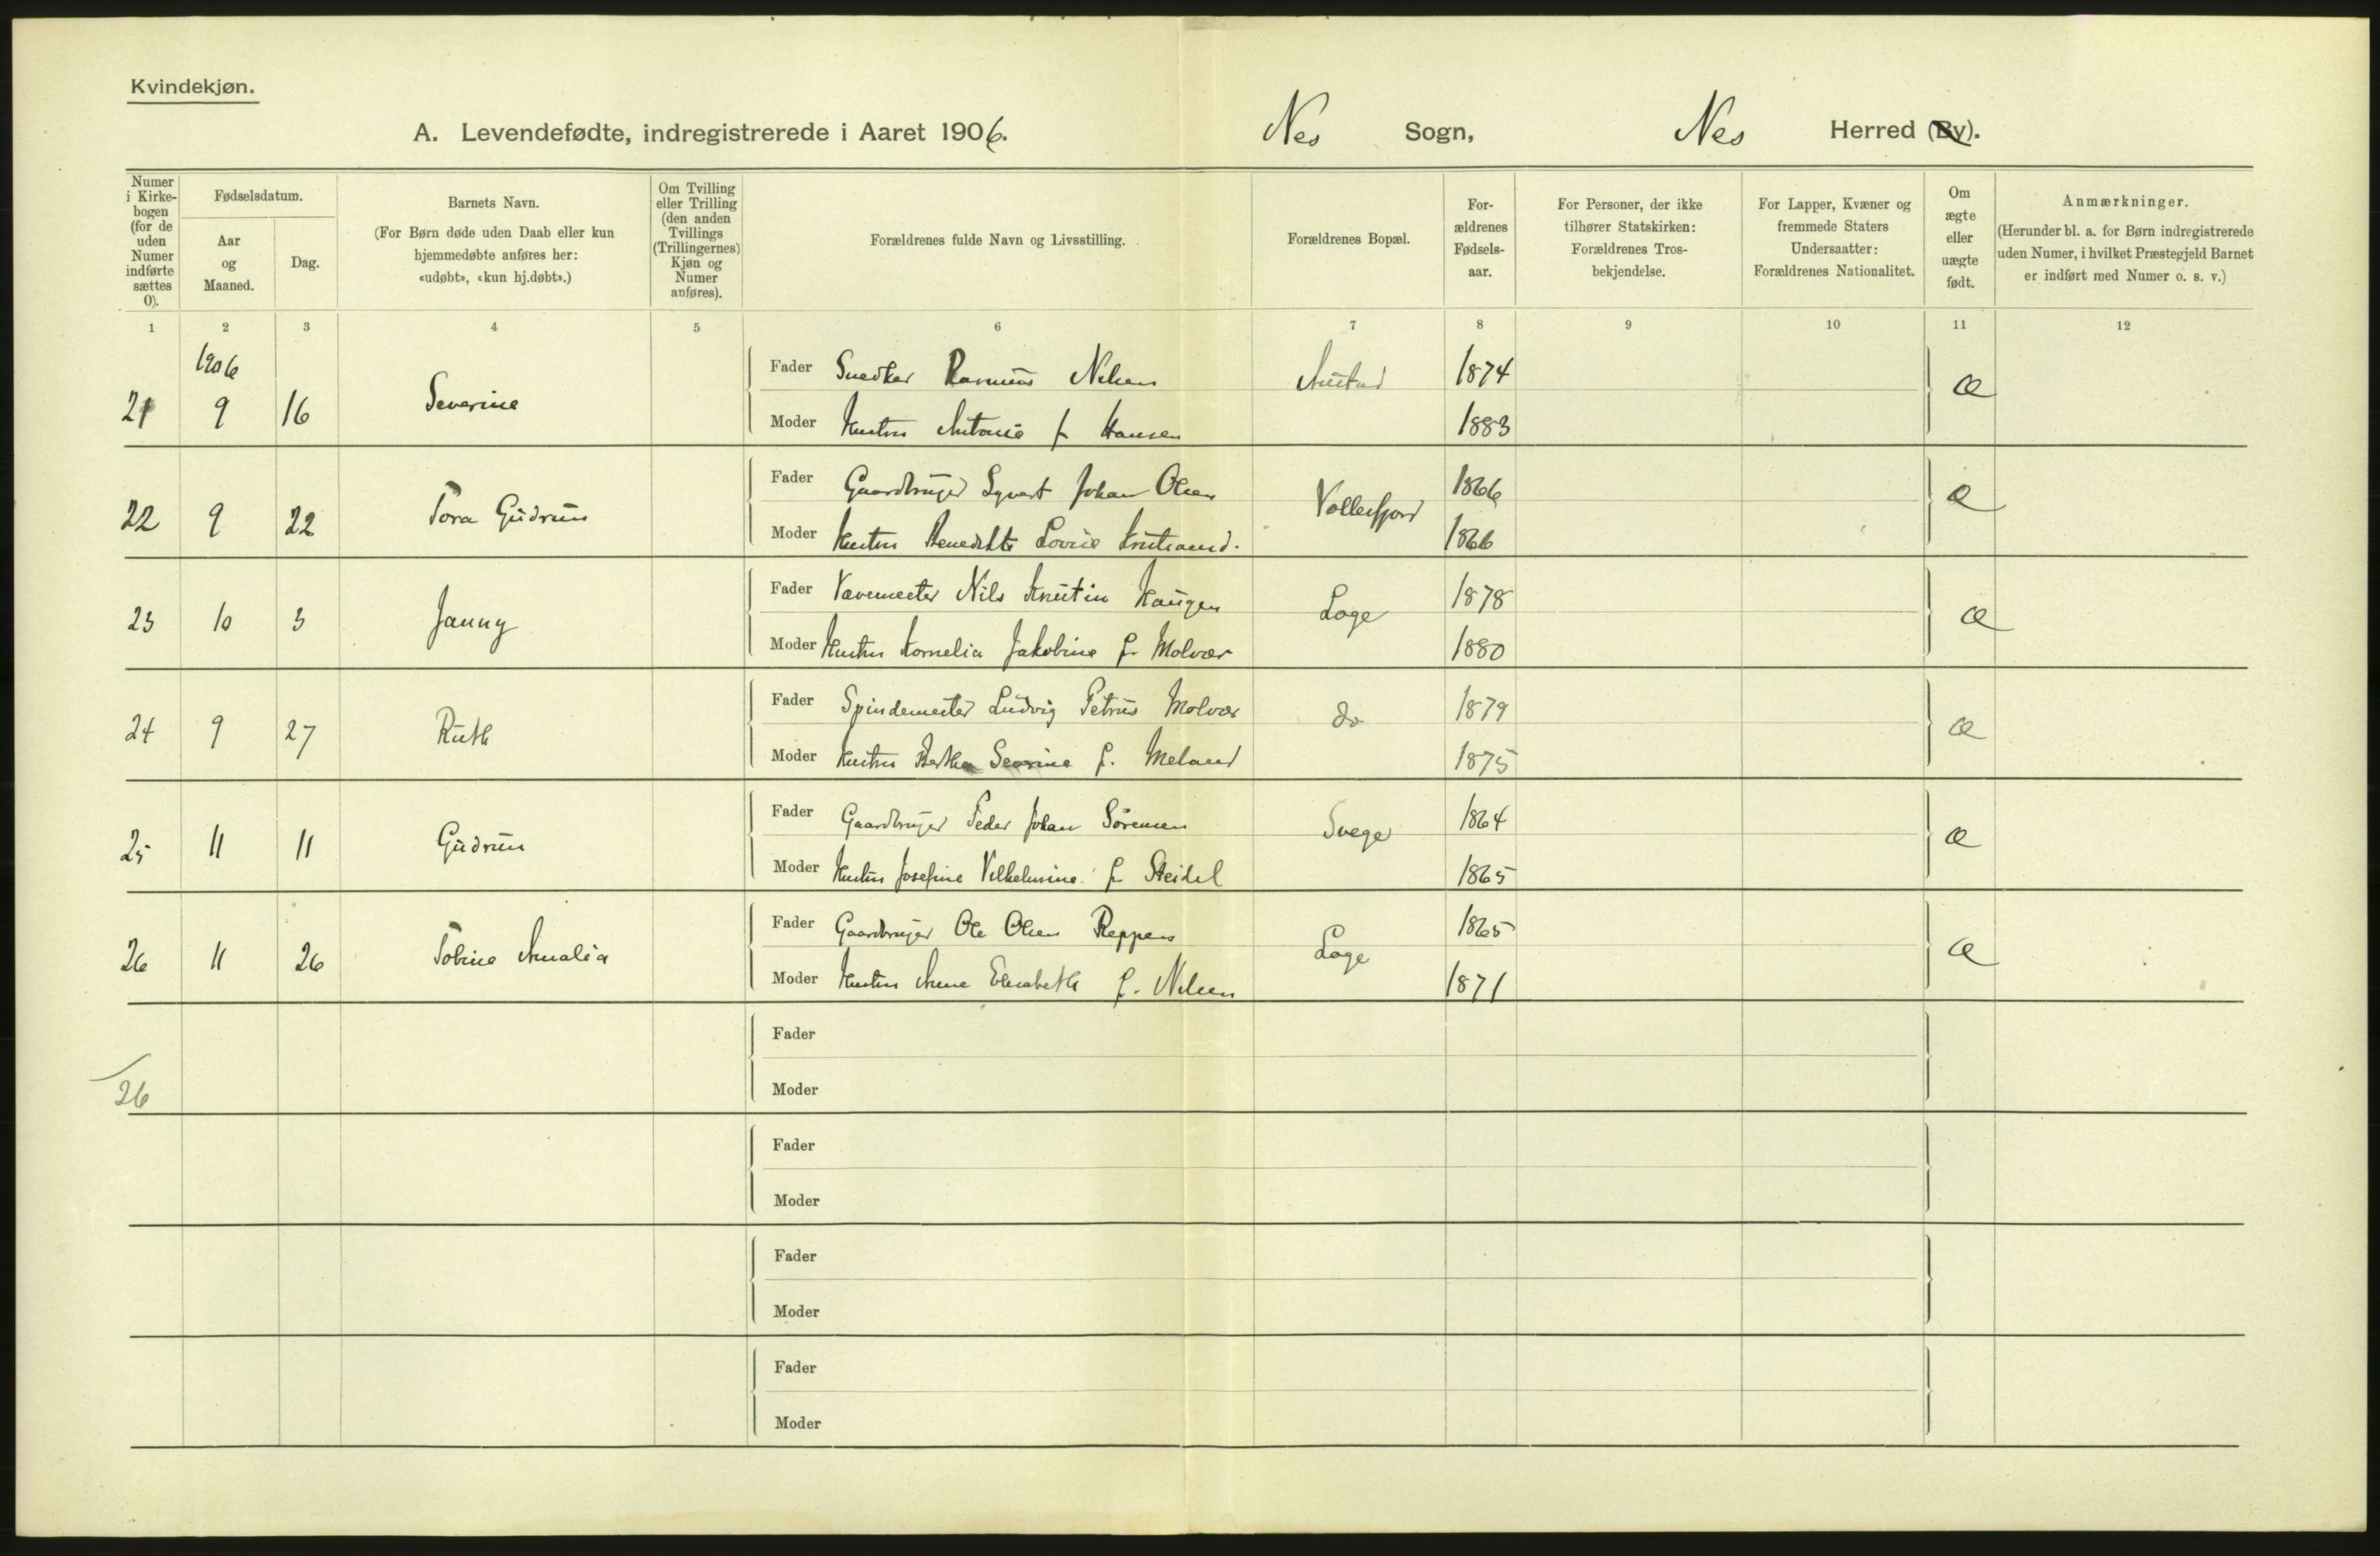 Kvindekjøn.
A. Levendefødte, indregistrerede i Aaret 1906. Nes Sogn, Nes Herred (By).
Numer i Kirke-bogen (for de uden Numer indførte sættes 0).
Fødselsdatum.
Aar og Maaned.
Dag.
Barnets Navn.
(For Børn døde uden Daab eller kun hjemmedøbte anføres her: «udøbt», «kun hj.døbt».)
Om Tvilling eller Trilling (den anden Tvillings (Trillingernes) Kjøn og Numer anføres).
Forældrenes fulde Navn og Livsstilling.
Forældrenes Bopæl.
For-ældrenes Fødsels-aar.
For Personer, der ikke tilhører Statskirken: Forældrenes Tros-bekjendelse.
For Lapper, Kvæner og fremmede Staters Undersaatter: Forældrenes Nationalitet.
Om ægte eller uægte født.
Anmærkninger.
(Herunder bl. a. for Børn indregistrerede uden Numer, i hvilket Præstegjeld Barnet er indført med Numer o. s. v.)
1 2 3 4 5 6 7 8 9 10 11 12
1906
21 9 16 Severine Fader Snedker Rasmus Nilsen 1874 Æ
Moder Hustru Antonie f Hansen 1883
22 9 22 Tora Gudrun Fader Gaardbruger Syvert Johan Olsen Vollesfjord 1866 Æ
Moder Hustru Benedikte Lovise 1866
23 10 3 Janny Fader Vævemester Nils Knutin Haugen Loge 1878 Æ
Moder Hustru Kornelia Jakobine f. Molvær 1880
24 9 27 Ruth Fader Spindemester Ludvig Petrus Molvær do 1879 Æ
Moder Hustru Berthe Severine f. Meland 1875
25 11 11 Gudrun Fader Gaardbruger Peder Johan Sørensen Svege 1864 Æ
Moder Hustru Josefine Vilhelmine f. Steidel 1865
26 11 26 Tobine Amalia Fader Gaardbruger Ole Olsen Reppen Loge 1865 Æ
Moder Hustru Anne Elisabeth f. Nilsen 1871
Fader
26 Moder
Fader
Moder
Fader
Moder
Fader
Moder